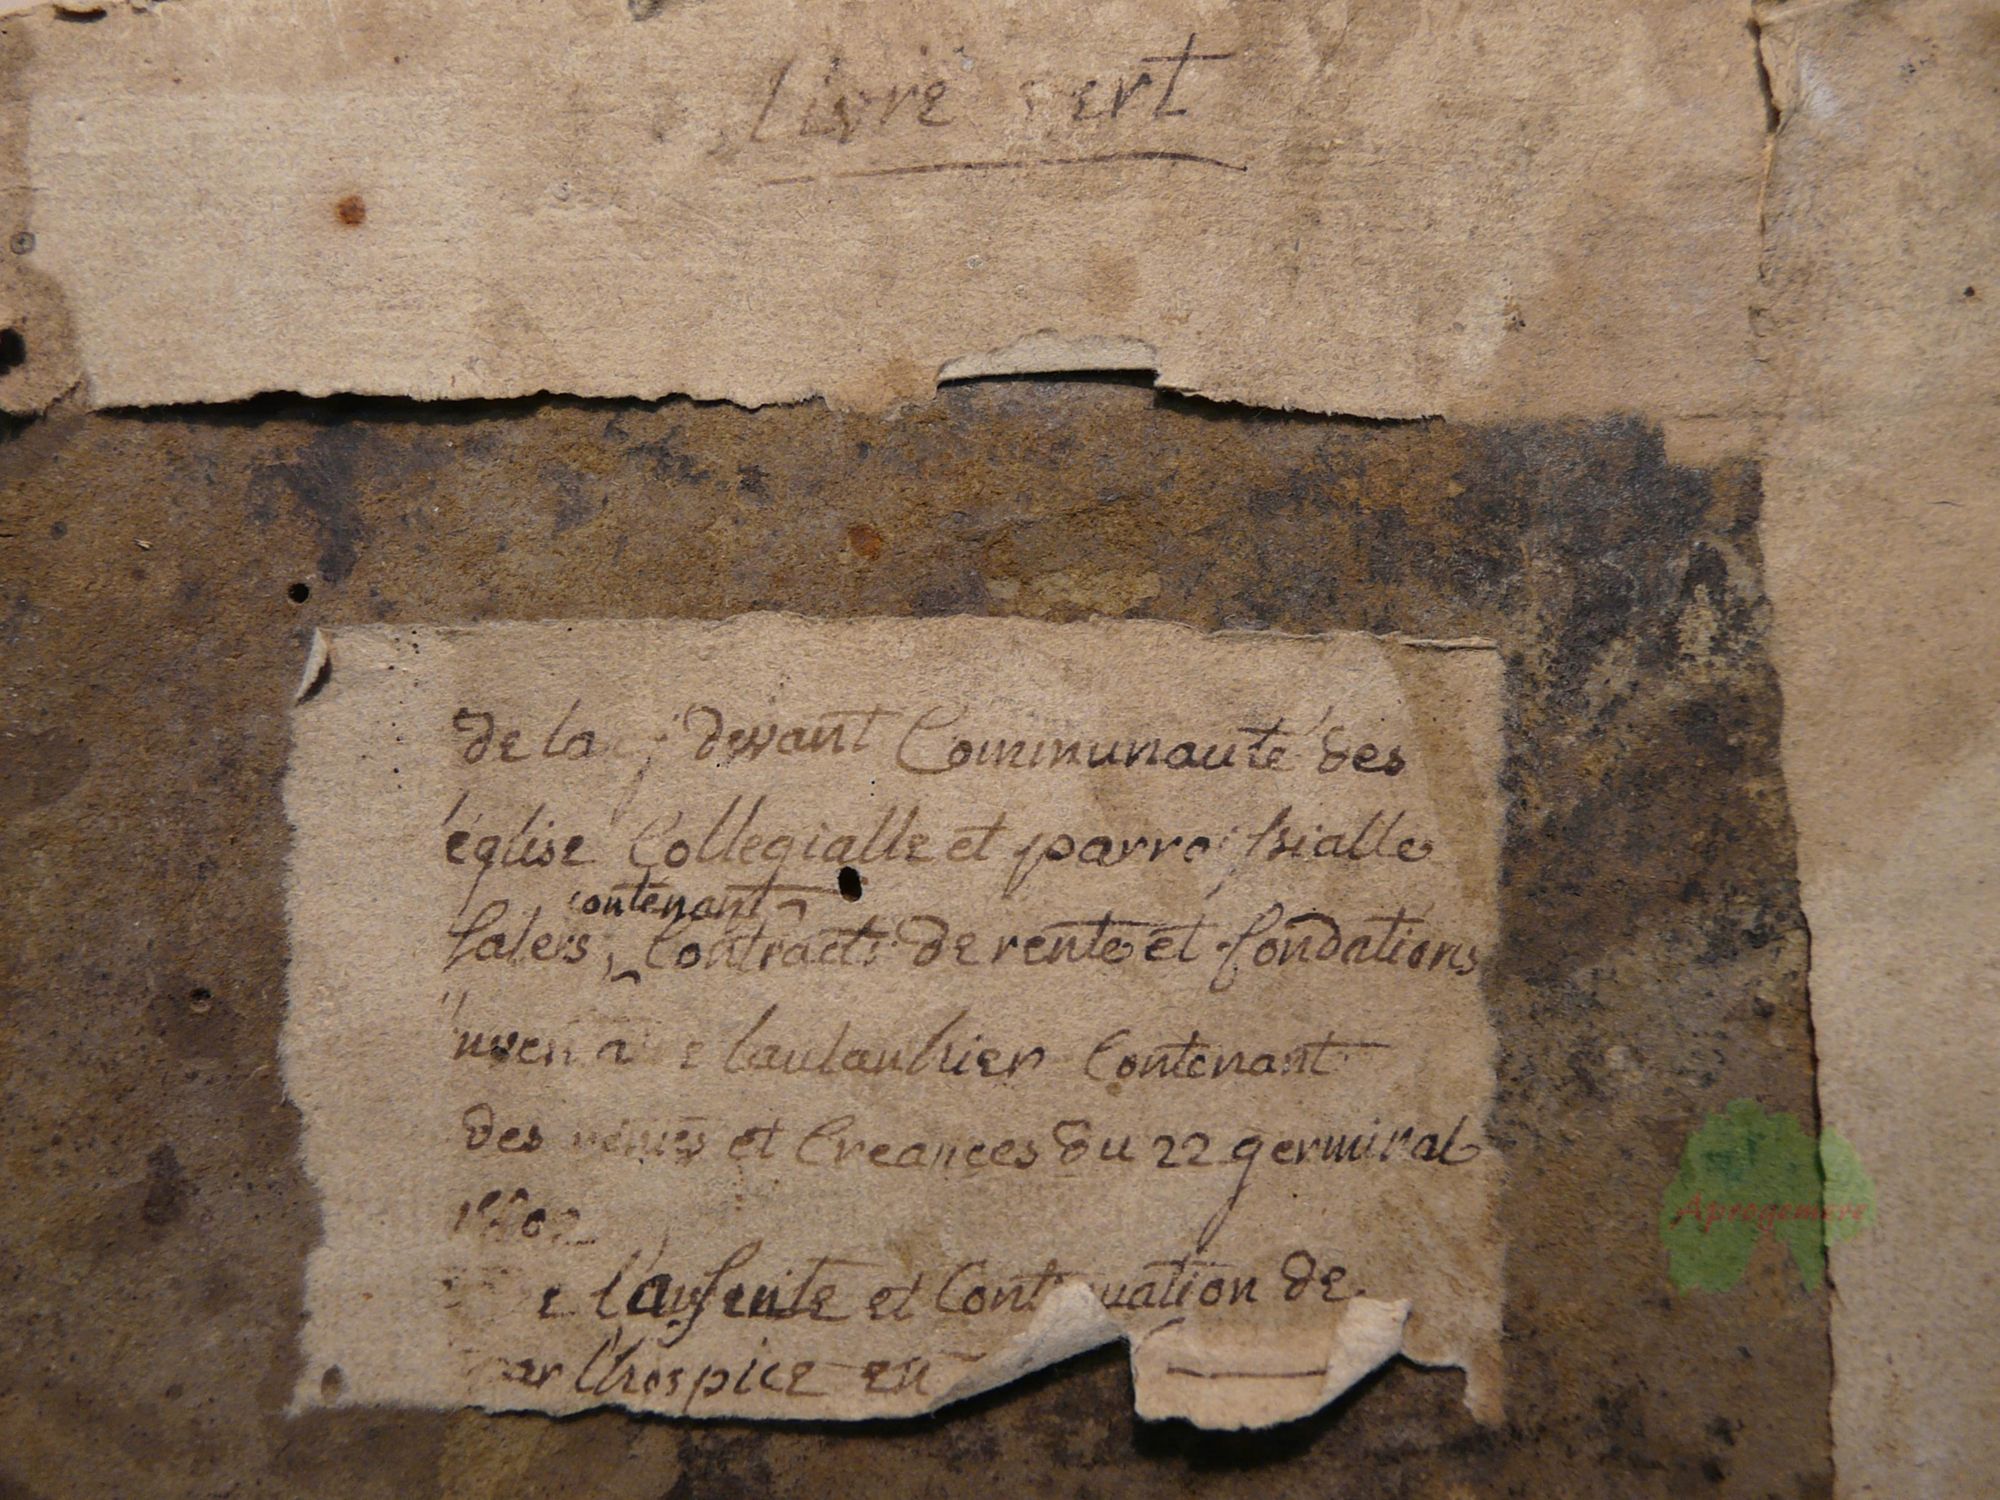 Livre vert
de la cj devant Communauté des
église Collegialle et parroissialle
contenant
Salers, Contracts de rente et fondations
Contenant
des et Creances du 22 germinal
1802
et Continuation de
par l'hospice en
Aprogemere